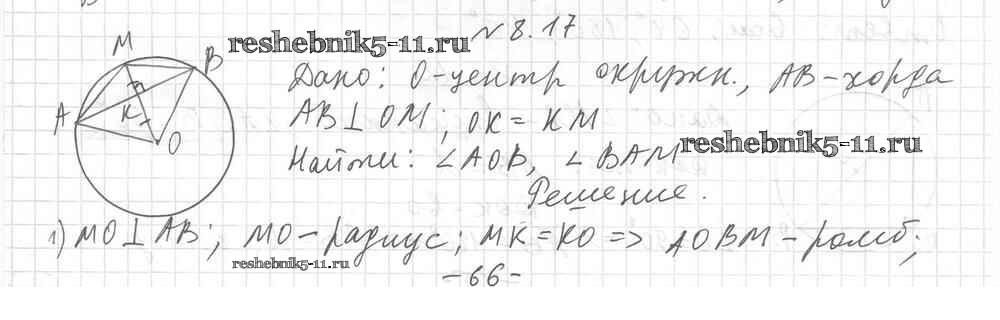 № 8.17
reshebnik5-11.ru
Дано: O-центр окружн., AB-хорда
AB⊥OM; OK=KM
reshebnik5-11.ru
Найти: ∠AOB, ∠BAM
Решение.
1) MO⊥AB; MO-радиус; MK=KO => AOBM-ромб;
reshebnik5-11.ru
-66-
M
B
A
K
O